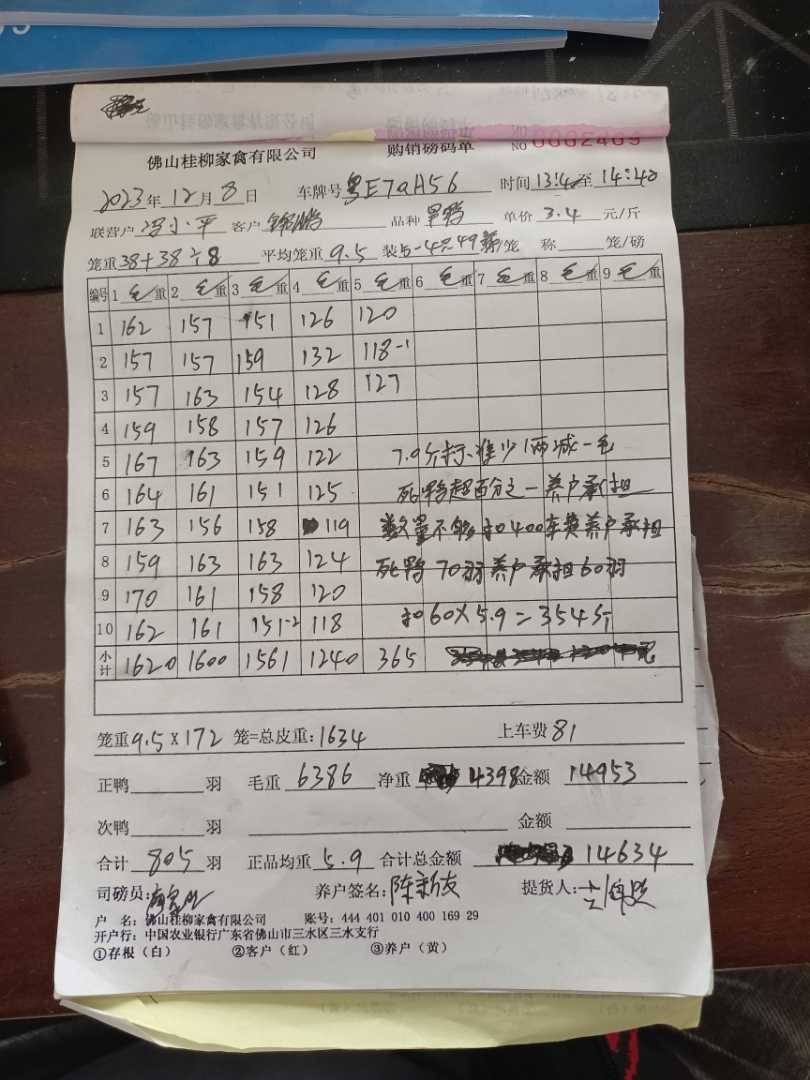 佛山桂柳家禽有限公司 购销磅码单 NO 0002409
2023年12月8日 车牌号粤E79A56 时间13:40至14:40
联营户 小平 客户 品种 单价3.4元/斤
笼重38+38÷8 平均笼重9.5 装5-4只49 笼 称 笼/磅
编号 1毛重 2毛重 3毛重 4毛重 5毛重 6毛重 7毛重 8毛重 9毛重
1 162 157 151 126 120
2 157 157 159 132 118-1
3 157 163 154 128 127
4 159 158 157 126
5 167 163 159 122 7.0斤标准少1两减一毛
6 164 161 151 125 死鸭超百分之一养户承担
7 163 156 158 119 数量不够扣400车费养户承担
8 159 163 163 124 死鸭70羽养户承担60羽
9 170 161 158 120
10 162 161 151-2 118 扣60×5.9=354斤
小计 1620 1600 1561 1240 365
笼重9.5×172笼=总皮重:1634 上车费81
正鸭 羽 毛重6386 净重4398 金额14953
次鸭 羽 金额
合计805羽 正品均重5.9 合计总金额14634
司磅员: 养户签名:陈新友 提货人:
户 名:佛山桂柳家禽有限公司 账号:444 401 010 400 169 29
开户行:中国农业银行广东省佛山市三水区三水支行
①存根(白) ②客户(红) ③养户(黄)